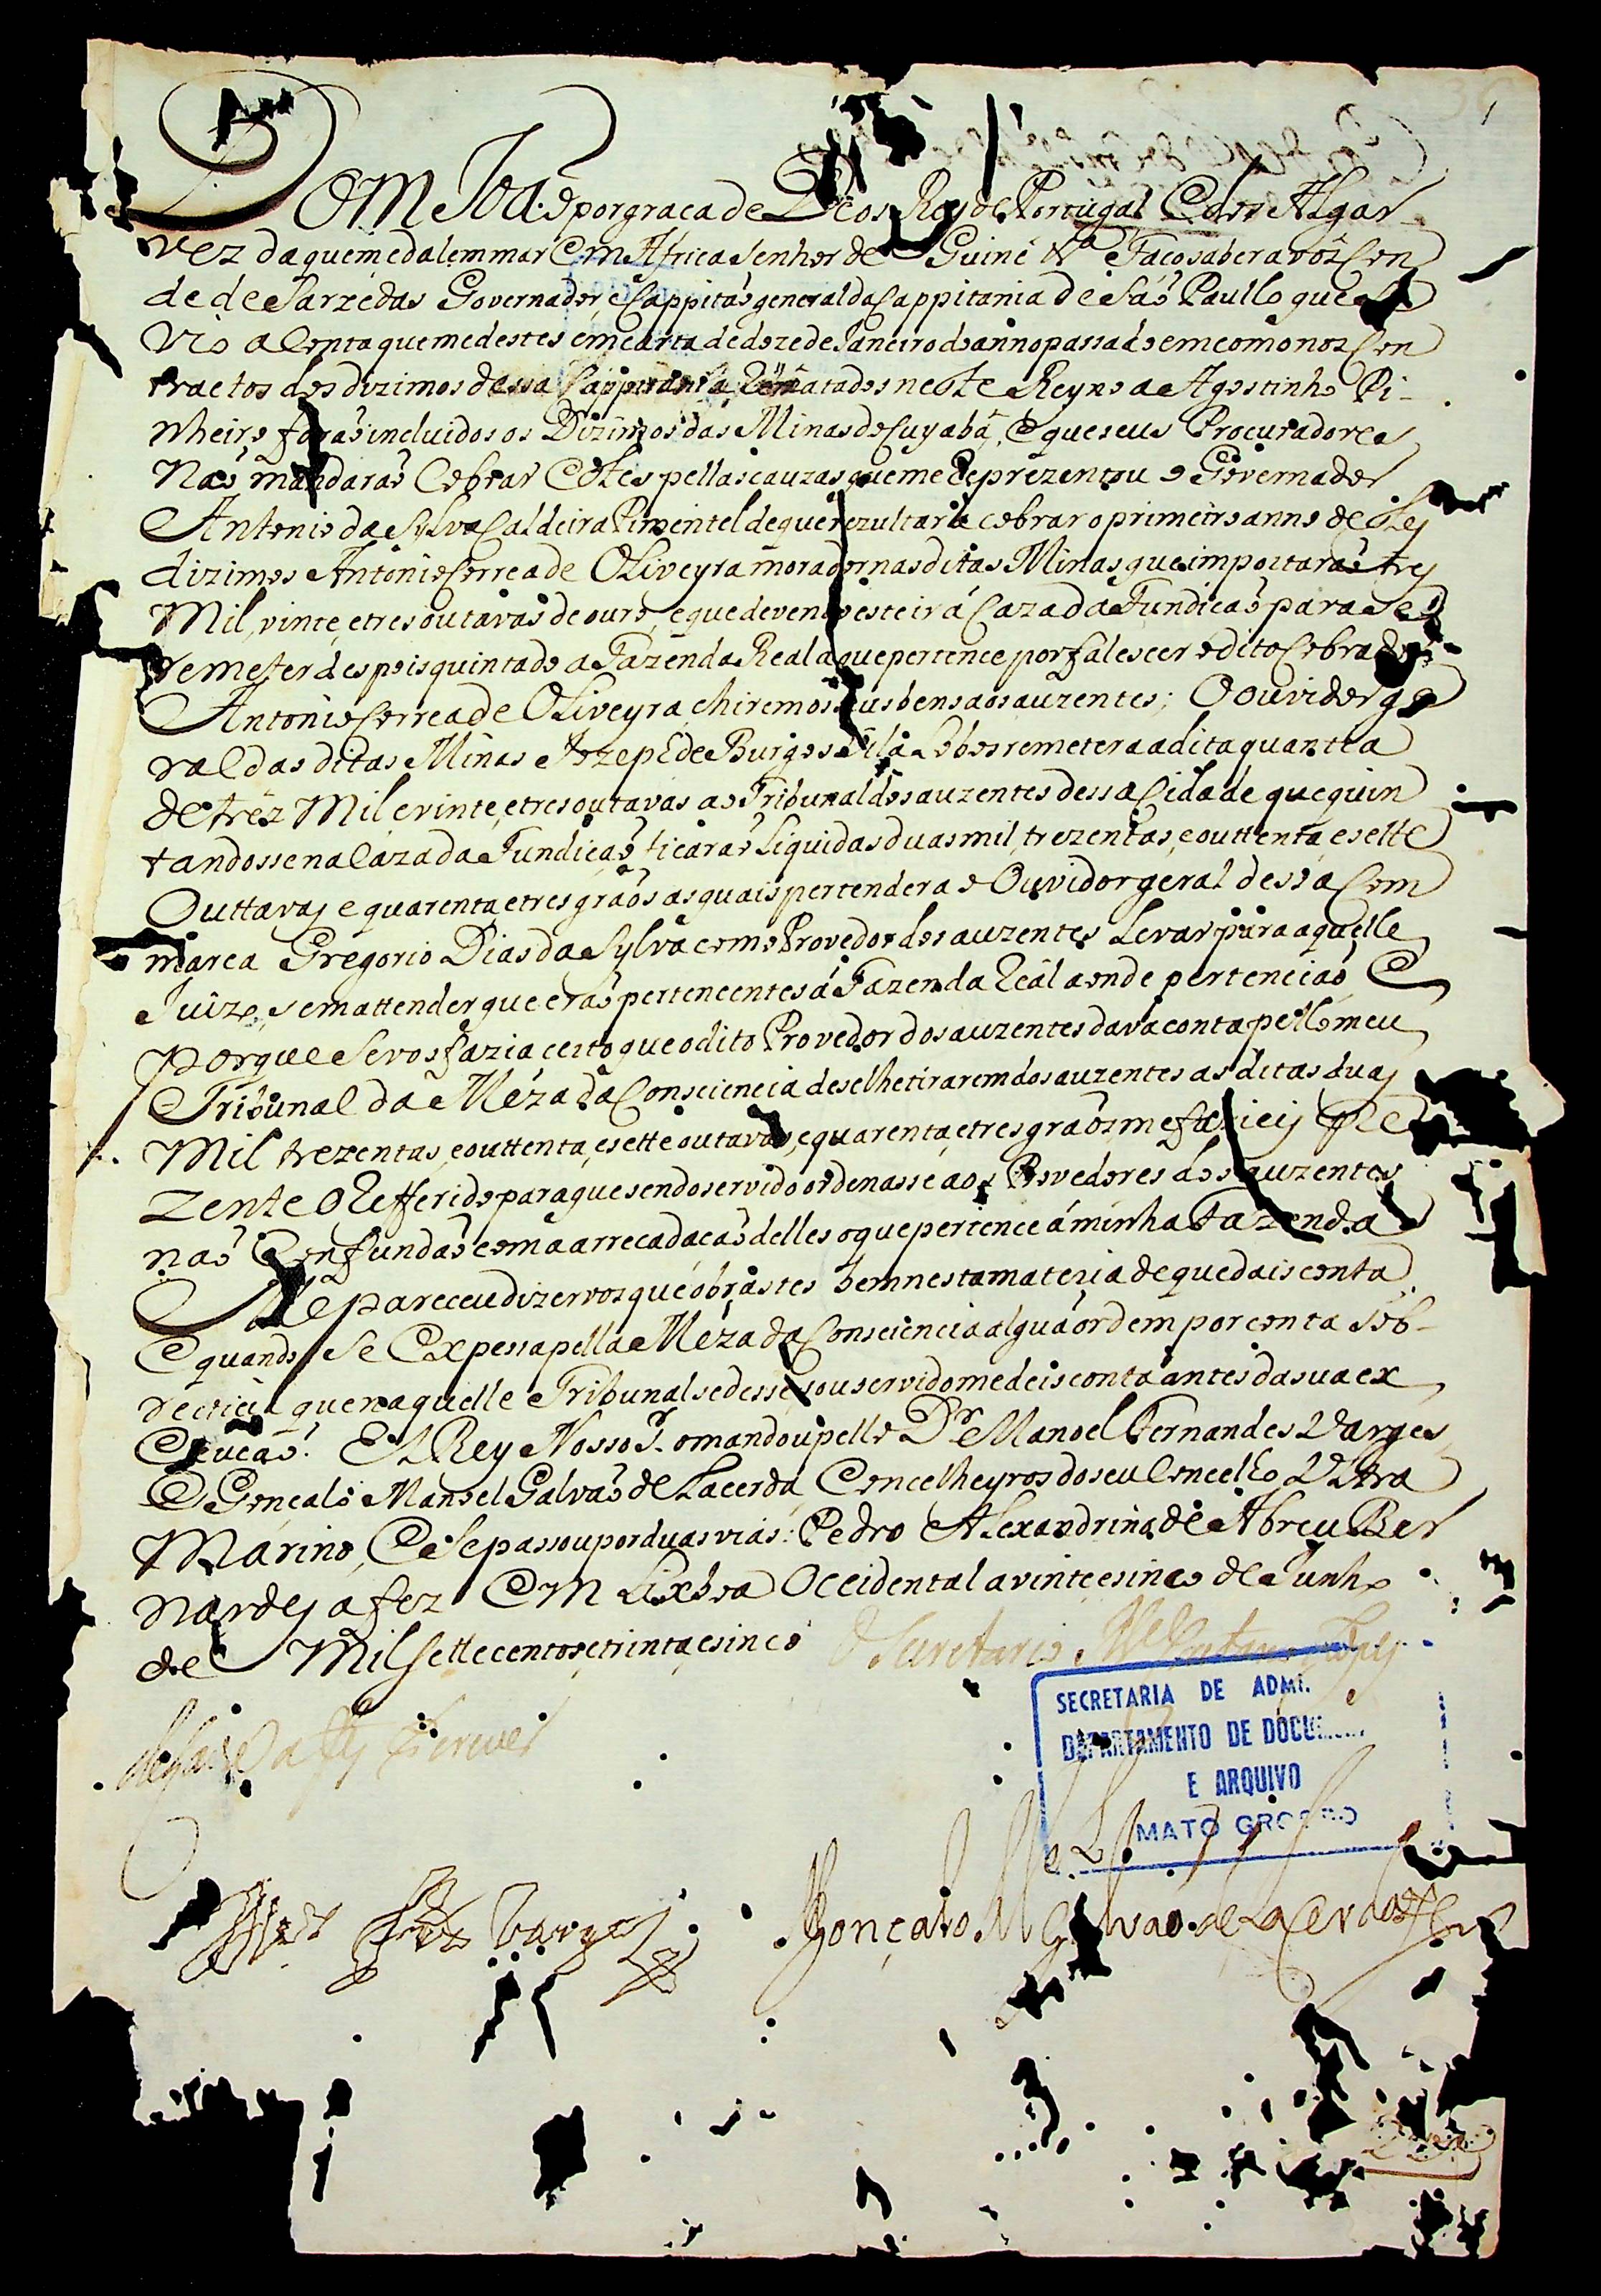 Dom Joaõ por graca de Deos Rey de Portugal e dos Algar-
vez daquem e dalem mar em Africa Senhor de Guiné &ª Faço saber a vós Con
de de Sarzedas Governador e Cappitaõ general da Cappitania de Saõ Paullo que se
vio a Conta que me destes em carta de doze de Janeiro do anno passado em como nos Con
tractos dos dizimos dessa Cappitania Rematados neste Reyno a Agostinho Pi-
nheiro foraõ incluidos os Dizimos das Minas do Cuyabá, e que seus Procuradores
Naõ mandaraõ Cobrar estes pellas cauzas que me Reprezentou o Governador
Antonio da Sylva Caldeira Pimentel de que rezultara cobrar o primeiro anno destes
dizimos Antonio Correa de Oliveyra morador nas ditas Minas que importaraõ tres
Mil, vinte, e tres outavas de ouro, e que devendo este ir á Caza da Fundicaõ para se
remeter despois quintado a Fazenda Real a que pertence por falescer o dito Cobrador
Antonio Correa de Oliveyra, e hirem os seus bens aos auzentes; O ouvidor ge
ral das ditas Minas Jozeph de Burgos Vila Lobos remetera a dita quantia
de trez Mil e vinte, e tres outavas ao Tribunal dos auzentes dessa Cidade que quin
tandosse na Caza da Fundicaõ ficaraõ Liquidas duas mil, trezentas, e outtenta, e sette
Outtavas e quarenta, e tres graõs as quais pertendera o Ouvidor geral dessa Com
marca Gregorio Dias da Sylva como Provedor dos auzentes Levar para aquelle
Juizo, sem attender que eraõ pertencentes á Fazenda Real aonde pertenciaõ, E
porque se vos fazia certo que o dito Provedor dos auzentes dava conta pello meu
Tribunal da Meza da Consciencia de se lhe tirarem dos auzentes as ditas duas
Mil trezentas, e outtenta, e sette outavas, e quarenta, e tres graõs me fazieis pre
zente o Refferido para que sendo servido ordenasse aos Provedores dos auzentes
naõ Confundaõ com a arrecadacaõ delles o que pertence á minha Fazenda
Me pareceu dizervos que obrastes bem nesta materia de que dais conta
E quando se Expessa pella Meza da Consciencia alguã ordem por conta sob-
recticia que naquelle Tribunal se desse, sou servido me deis conta antes da sua ex
ecucaõ. El Rey Nosso Sr. o mandou pello Dr. Manoel Fernandes Varges
E Gonçalo Manoel Galvaõ de Lacerda Concelheyros do seu Concelho Ultra
Marino, E se passou por duas vias: Pedro Alexandrino de Abreu Ber
nardes a fez Em Lixboa Occidental a vinte e sinco de Junho
de Mil settecentos, e trinta, e sinco O Secretario Mel Caetano Lopes
de Lavre a fes Escrever
SECRETARIA DE ADMI.
DEPARTAMENTO DE DOCU
E ARQUIVO
MATO GROSSO
Varges Gonçalo M Galvaõ de Lacerda